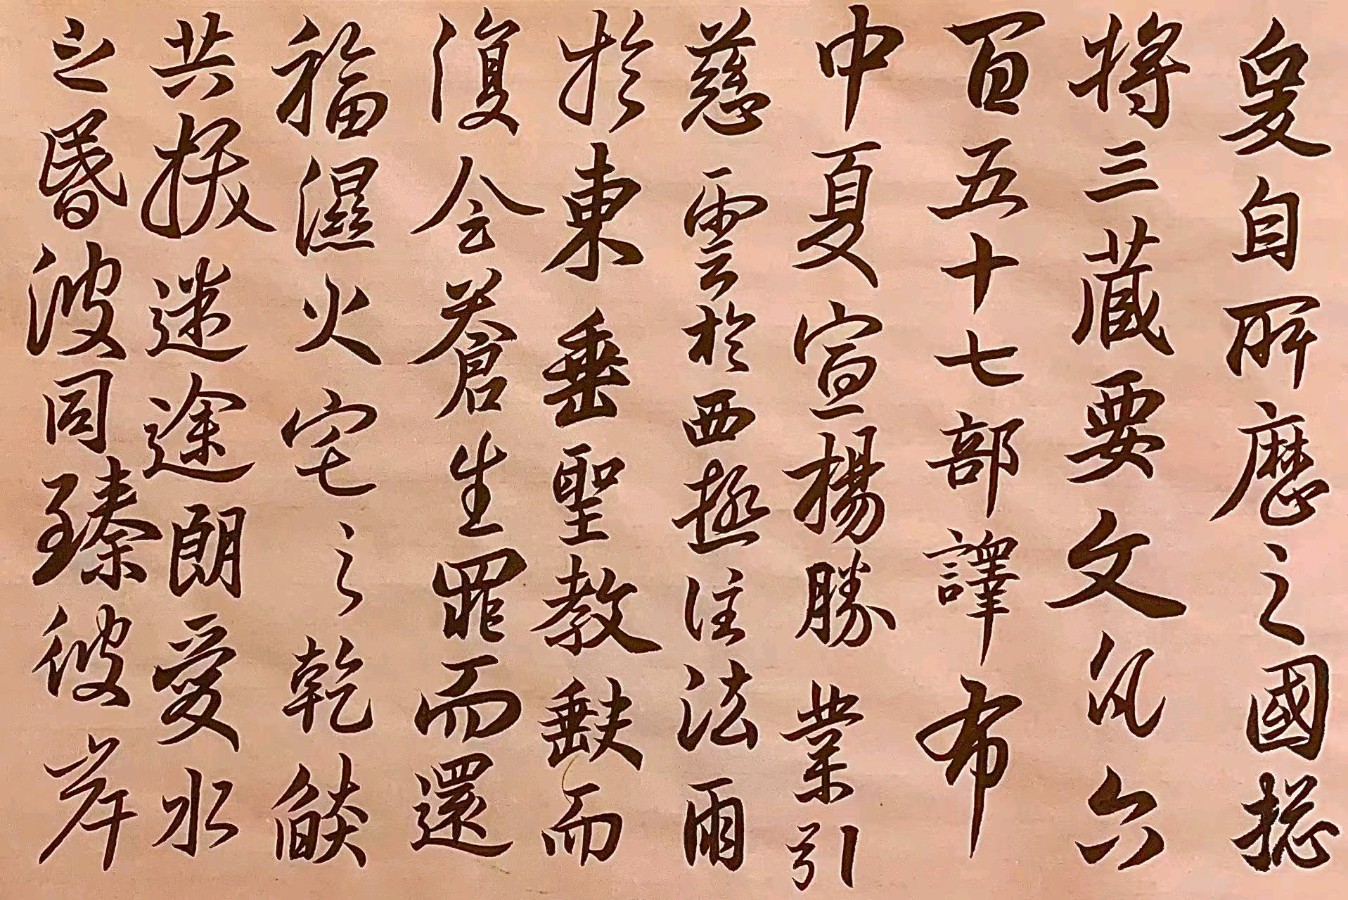 爰自所歷之國捴
將三藏要文凡六
百五十七部譯布
中夏宣揚勝業引
慈雲於西極注法雨
於東垂聖教缺而
復全蒼生罪而還
福濕火宅之乾焰
共拔迷途朗愛水
之昏波同臻彼岸